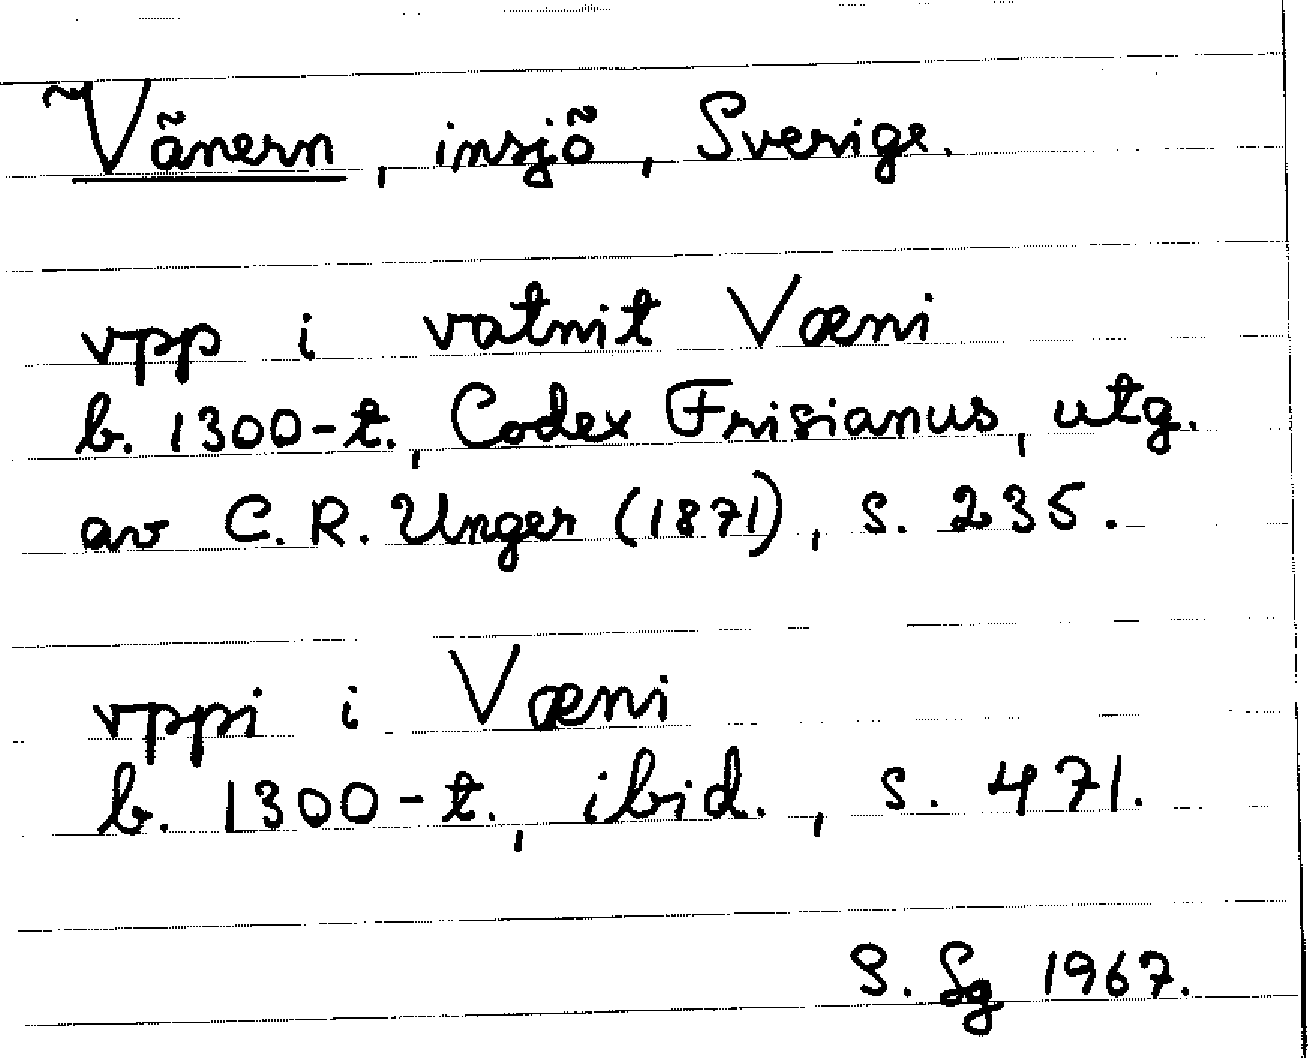 Vänern, insjö, Sverige.
vpp i vatnit Væni
b. 1300-t., Codex Frisianus, utg.
av C. R. Unger (1871), s. 235.
vppi i Væni
b. 1300-t., ibid., s. 471.
S. Sg 1967.